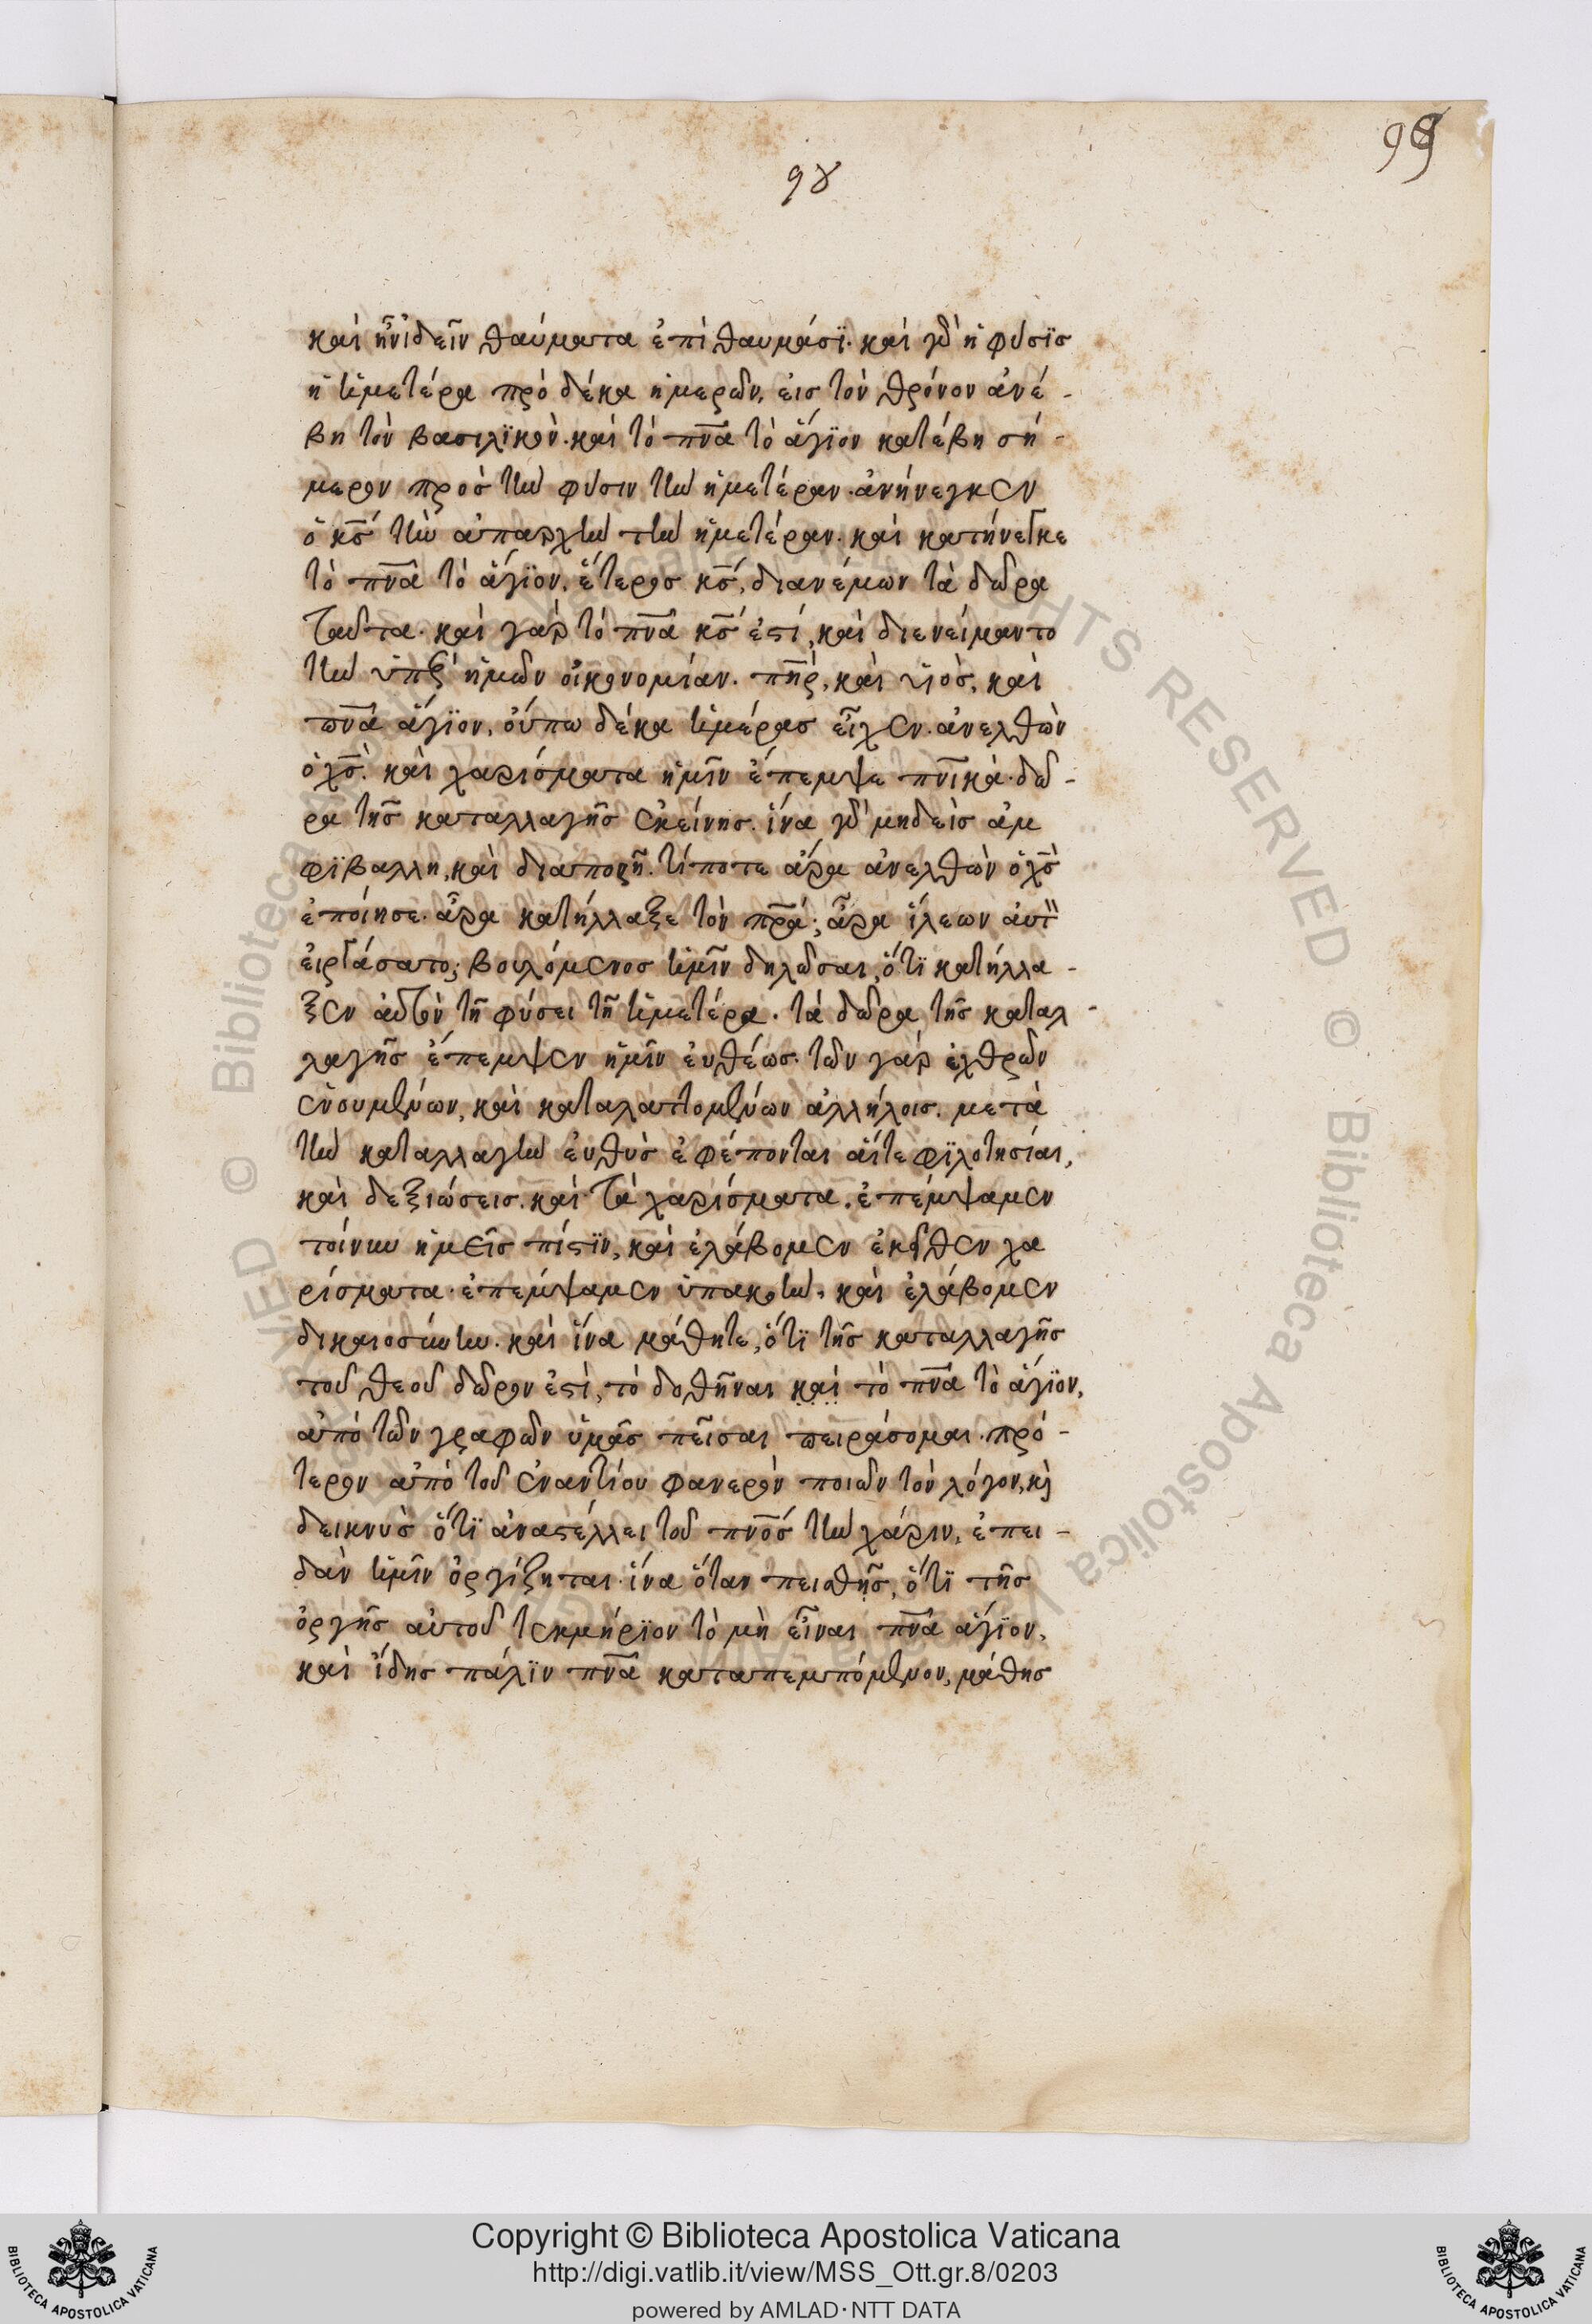 99
98
καὶ ἦν ἰδεῖν θαύματα ἐπὶ θαυμάσϊ. καὶ γὰρ ἡ φύσϊς
ἡ ἡμετέρα πρὸ δέκα ἡμερῶν, εἰς τὸν θρόνον ἀνέ-
βη τὸν βασιλϊκὸν. καὶ τὸ πνᾶ τὸ ἅγϊον κατέβη σή-
μερον πρὸς τὴν φύσιν τὴν ἡμετέραν. ἀνήνεγκεν
ὁ κς τὴν ἀπαρχὴν τὴν ἡμετέραν. καὶ κατήνεγκε
τὸ πνᾶ τὸ ἅγϊον. ἕτερος κς, διανέμων τὰ δῶρα
ταῦτα. καὶ γὰρ τὸ πνᾶ κς ἐστί, καὶ διενείμαντο
τὴν ὑπὲρ ἡμῶν οἰκονομίαν. πηρ, καὶ υἱὸς, καὶ
πνᾶ ἅγϊον, οὔπω δέκα ἡμέρας εἶχεν. ἀνελθὼν
ὁ χς. καὶ χαρίσματα ἡμῖν ἔπεμψε πνϊκὰ. δῶ-
ρα τῆς καταλλαγῆς ἐκείνης. ἵνα γὰρ μηδεὶς ἀμ
φϊβαλλη, καὶ διαπορῆ. τί ποτε ἄρα ἀνελθὼν ὁ χς
ἐποίησε. ἆρα κατήλλαξε τὸν πρα; ἆρα ἵλεων αὐτ
εἰργάσατο; βουλόμενος ἡμῖν δηλῶσαι, ὅτϊ κατήλλα-
ξεν αὐτὸν τῆ φύσει τῆ ἡμετέρα. τὰ δῶρα τῆς καταλ-
λαγῆς ἔπεμψεν ἡμῖν εὐθέως. τῶν γὰρ ἐχθρῶν
ἑνουμένων, καὶ καταλαττομένων ἀλλήλοις. μετὰ
τὴν καταλλαγὴν εὐθὺς ἐφέπονται αἵτε φϊλοτησίαι,
καὶ δεξιώσεις. καὶ τὰ χαρίσματα. ἐπέμψαμεν
τοίνυν ἡμεῖς πίστϊν, καὶ ἐλάβομεν ἐκεῖθεν χα
ρίσματα. ἐπέμψαμεν ὑπακοὴν, καὶ ἐλάβομεν
δικαιοσύνην. καὶ ἵνα μάθητε, ὅτϊ τῆς καταλλαγῆς
τοῦ θεοῦ δῶρον ἐστὶ, τὸ δοθῆναι καὶ τὸ πνᾶ τὸ ἅγϊον,
ἀπὸ τῶν γραφῶν ὑμᾶς πεῖσαι πειράσομαι. πρό-
τερον ἀπὸ τοῦ ἐναντίου φανερὸν ποιῶν τὸν λόγον, κὶ
δεικνὺς ὅτϊ ἀναστέλλει τοῦ πνς τὴν χάριν, ἐπει-
δὰν ἡμῖν ὀργίζηται. ἵνα ὅταν πεισθῆς, ὅτϊ τῆς
ὀργῆς αὐτοῦ τεκμήρϊον τὸ μὴ εἶναι πνᾶ ἅγϊον,
καὶ ἴδης πάλϊν πνᾶ καταπεμπόμενον, μάθης
Copyright © Biblioteca Apostolica Vaticana
http://digi.vatlib.it/view/MSS_Ott.gr.8/0203
powered by AMLAD·NTT DATA